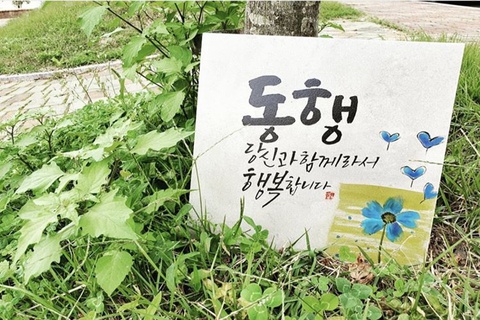 동행
당신과함께라서
행복합니다